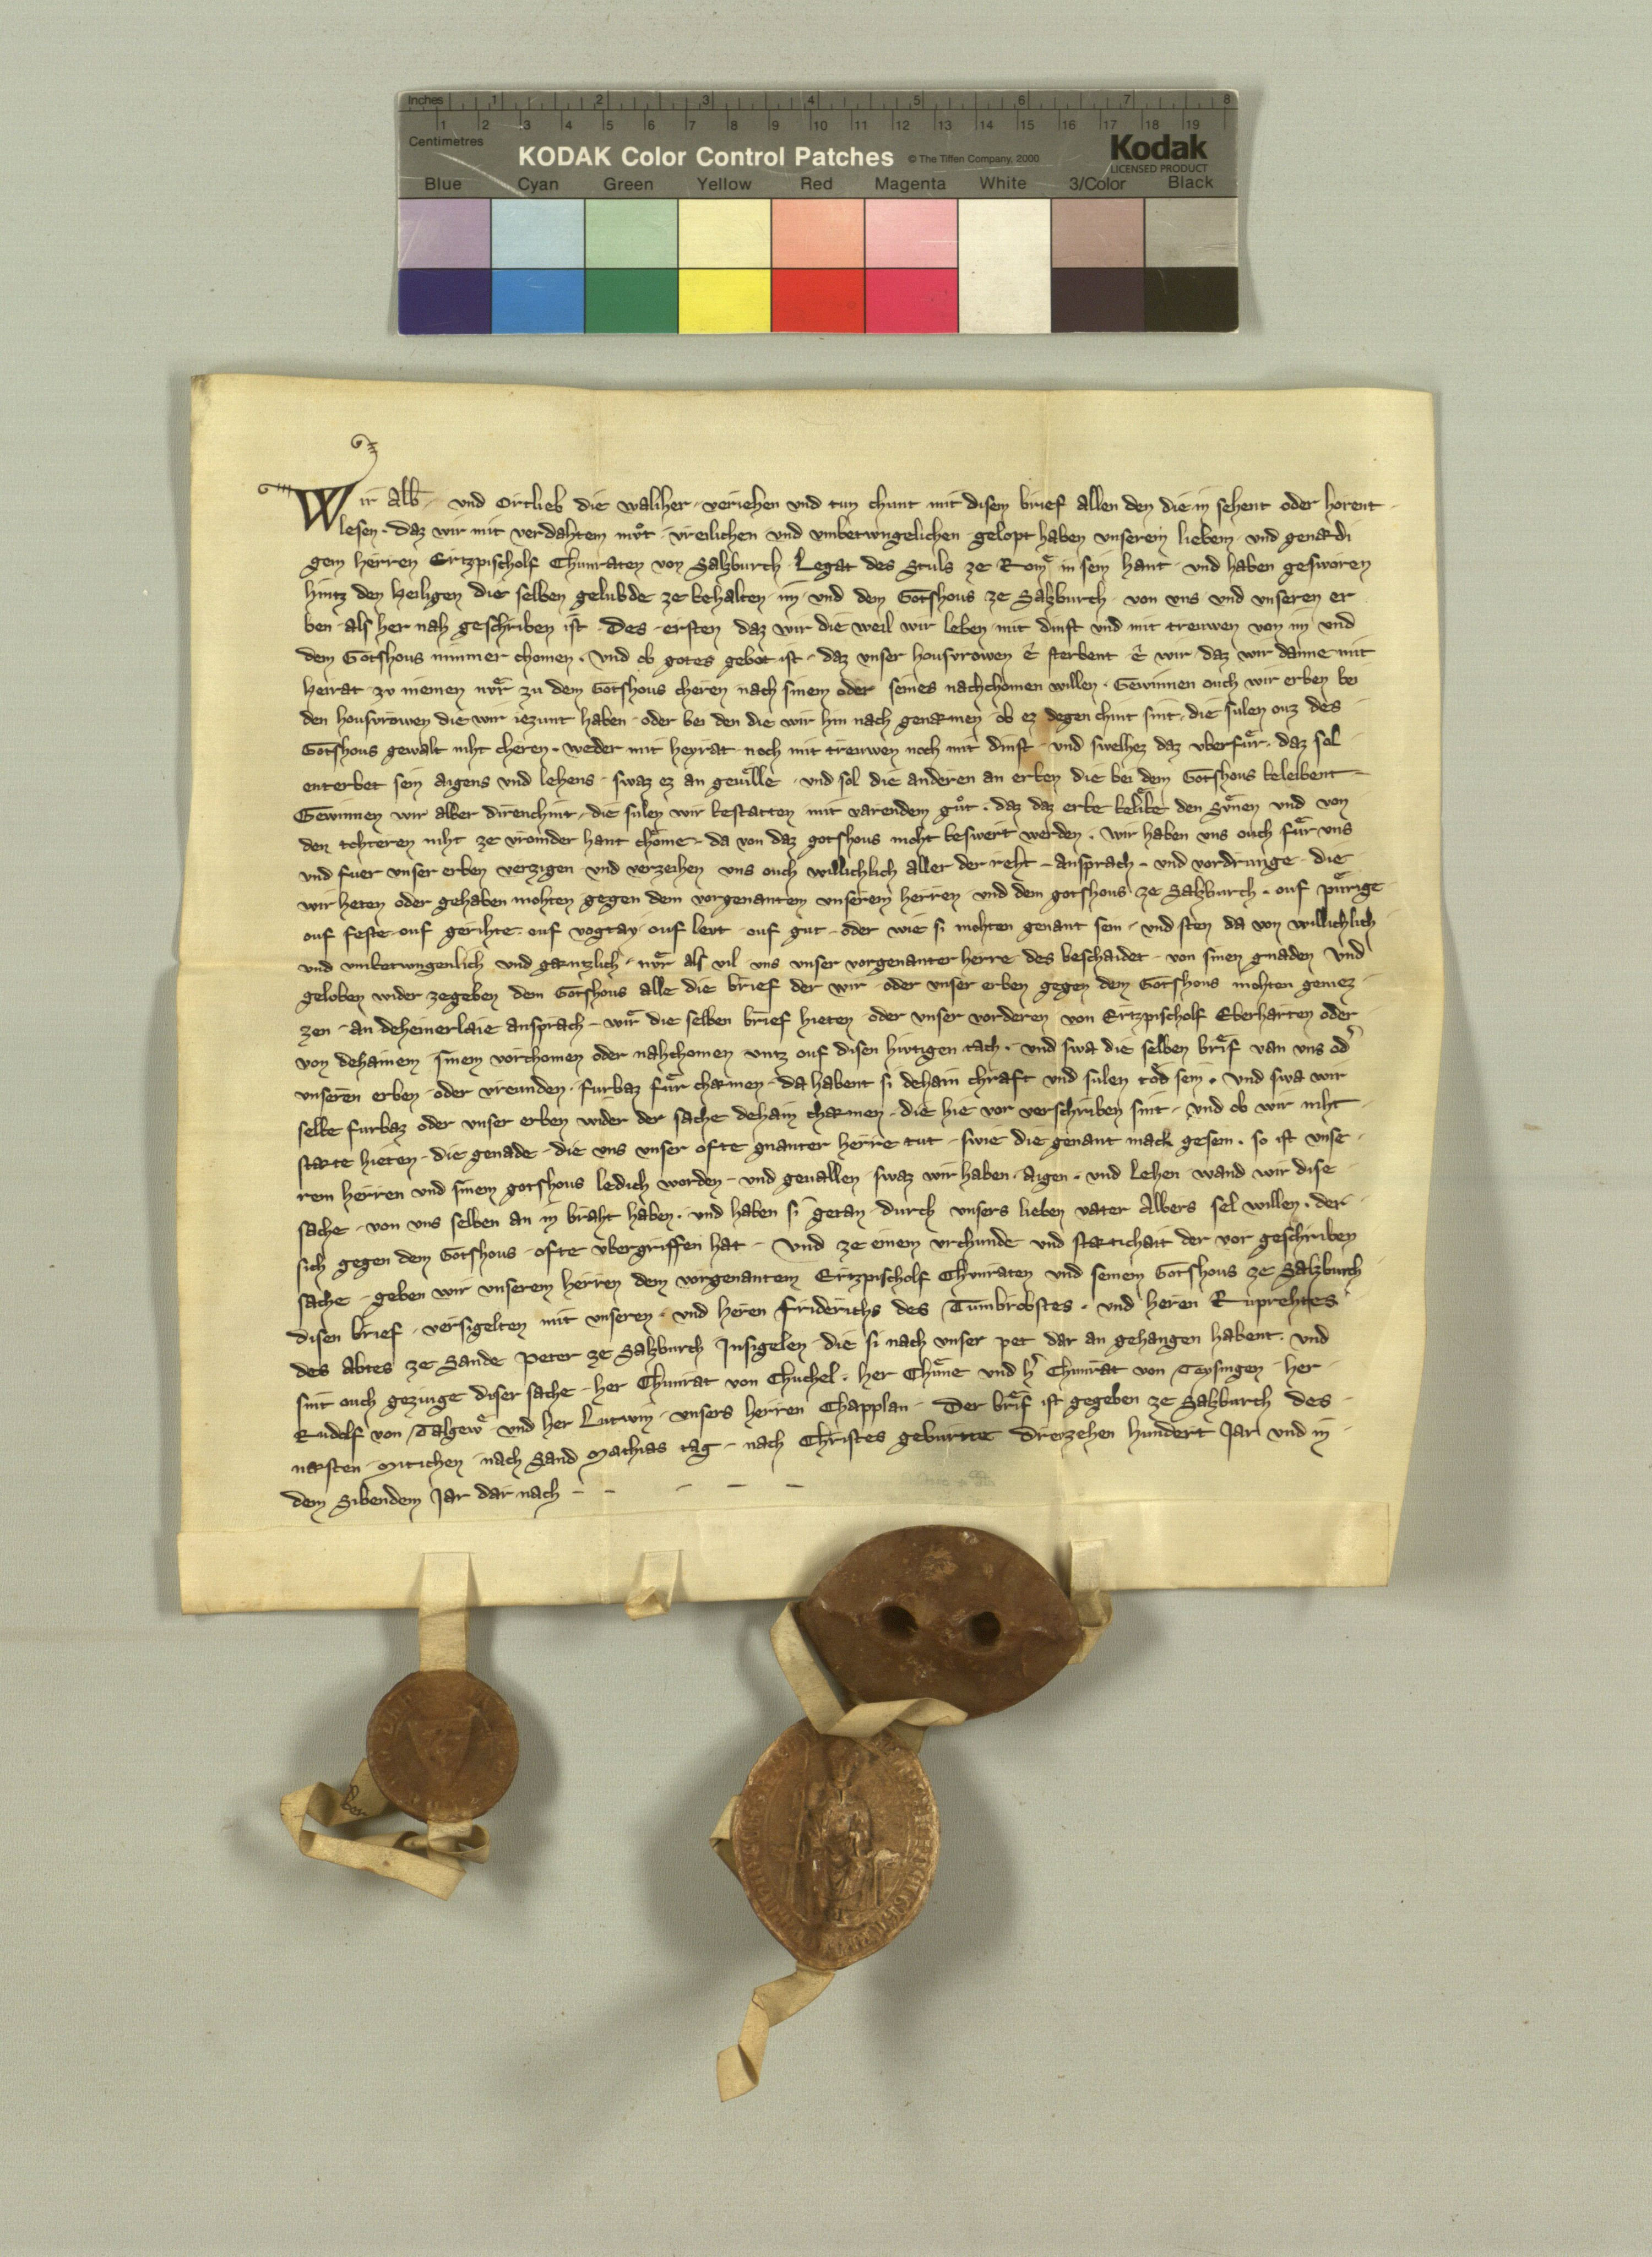 Inches 1 2 3 4 5 6 7 8
Centimetres 1 2 3 4 5 6 7 8 9 10 11 12 13 14 15 16 17 18 19
KODAK Color Control Patches © The Tiffen Company, 2000 Kodak
LICENSED PRODUCT
Blue Cyan Green Yellow Red Magenta White 3/Color Black
Wir Alb̄ · und Ortlieb die waliher · veriehen und tun chunt mit disem brief allen den die in sehent oder horent
lesen · daz wir mit verdahtem můt · vreilichen und umbetwngelichen gelopt haben unserem lieben und genædi
gem herren Ertzpischolf Chunraten von Salzburch Legat des Stuls ze Rom in sein hant · und haben gesworen
hintz den heiligen die selben gelubde ze behalten im und dem Gotshous ze Salzburch von uns und unseren er
ben als her nah geschriben ist · Des ersten daz wir die weil wir leben mit dinst und mit treuwen von im und
dem Gotshous nimmer chomen · und ob gotes gebot ist · daz unser housvrowen ê sterbent ê wir · daz wir danne mit
heirat zu niemen nvͤr zu dem Gotshous cheren nach sinem oder seines nachchomen willen · Gewinnen ouch wir erben bei
den housvrowen die wir iezunt haben · oder bei den die wir hin nach genæmen ob ez degen chint sint · die sulen ouz des
Gotshous gewalt niht cheren · weder mit heyrat noch mit treuwen noch mit dinst · und swelhez daz uberfuͤr · daz sol
enterbet sein aigens und lehens · swaz ez an geuͤlle · und sol die anderen an erben die bei dem Gotshous beleibent
Gewinnen wir aber direnchint · die sulen wir bestatten mit varendem gůt · daz daz erbe belibe den Suͤnen und von
den tohteren niht ze vromder hant chome · da von daz gotshous moht beswert werden · wir haben uns ouch fuͤr uns
und fuer unser erben verzigen und verzeihen uns ouch willichlich aller der reht · ansprach · und vordrunge die
wir heten oder gehaben mohten gegen dem vorgenantem unserem herren und dem gotshous ze Salzburch · ouf puͤrige
ouf feste ouf gerihte ouf vogtay ouf levt ouf gut oder wie si mohten genant sein · und sten da von willichlich
und umbetwngenlich und gæntzlich · nvͤr als vil uns unser vorgenanter herre des beschaidet · von sinen gnaden und
geloben wider zegeben dem Gotshous alle die brief der wir oder unser erben gegen dem Gotshous mohten geniez
zen · an deheinerlaie ansprach · wir die selben brief hieten oder unser vorderen von Ertzpischolf Eberharten oder
von dehainem sinem vorchomen oder nahchomen untz ouf disen hivtigen tach · und swa die selben brif van uns oder
unseren erben oder vreunden · furbaz fuͤr chæmen · da habent si dehain chraft und sulen tod sein · und swa wir
selbe furbaz oder unser erben wider der sache dehain chæmen · die hie vor verschriben sint · und ob wir niht
stæte hieten · die genade · die uns unser ofte gnanter herre tut · swie die genant mack gesein · so ist unse
rem herren und sinem gotshous ledich worden · und geuallen swaz wir haben · aigen · und Lehen wand wir dise
sache von uns selben an in braht haben · und haben si getan durch unsers lieben vater Albers sel willen · der
sich gegen dem Gotshous ofte ubergriffen hat · Und ze einem urchunde und stætichait der vor geschriben
sache geben wir unserem herren dem vorgenantem Ertzpischolf Chunraten und seinem Gotshous ze Salzburch
disen brief versigelten mit unseren · und heren Friderichs des Tumbrobstes · und heren Ruprehtes
des abtes ze Sande Peter ze Salzburch Insigelen die si nach unser pet dar an gehangen habent · und
sint ouch gezivge diser sache · her Chunrat von Chuchel · her Chuͤne und her Chunrat von Teysingen her
Rudolf von Talgew und her Lutwin unsers herren Chapplan · Der brif ist gegeben ze Salzburch des
næsten mitichen nach Sand Mathias tag · nach Christes geburtte Dreizehen hundert Jar und in
dem Sibendem Jar dar nach